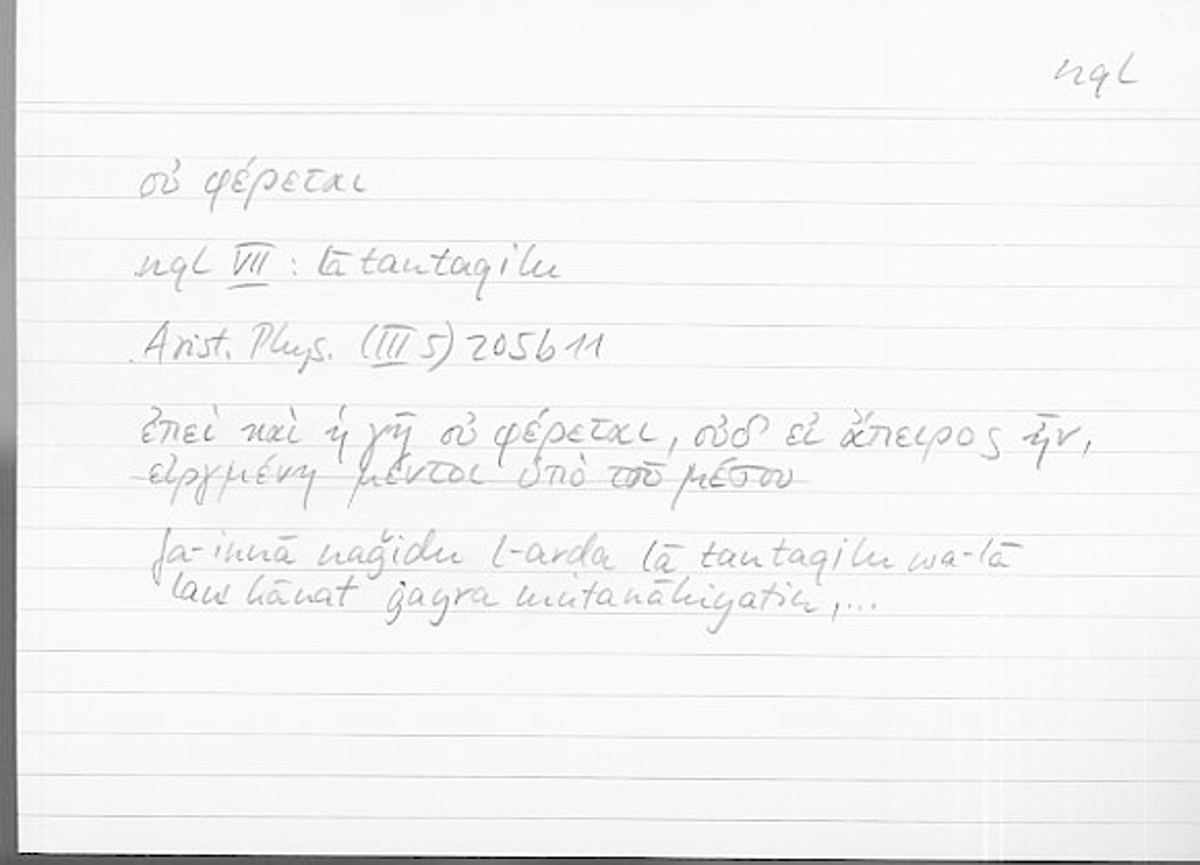 nql
οὐ φέρεται
nql VII : lā tantaqilu
Arist. Phys. (III 5) 205b11
ἐπεὶ καὶ ἡ γῆ οὐ φέρεται, οὐδ' εἰ ἄπειρος ἦν,
εἰργμένη μέντοι ὑπὸ τοῦ μέσου
fa-innā naǧidu l-arḍa lā tantaqilu wa-lā
law kānat ġayra mutanāhiyatin,...